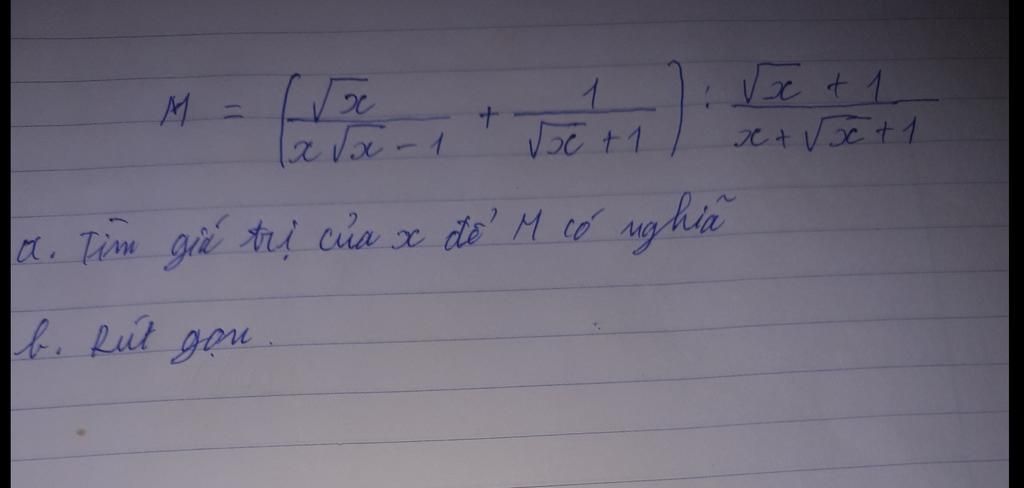 M = (√x / (x√x - 1) + 1 / (√x + 1)) : (√x + 1) / (x + √x + 1)
a. Tìm giá trị của x để M có nghĩa
b. Rút gọn.